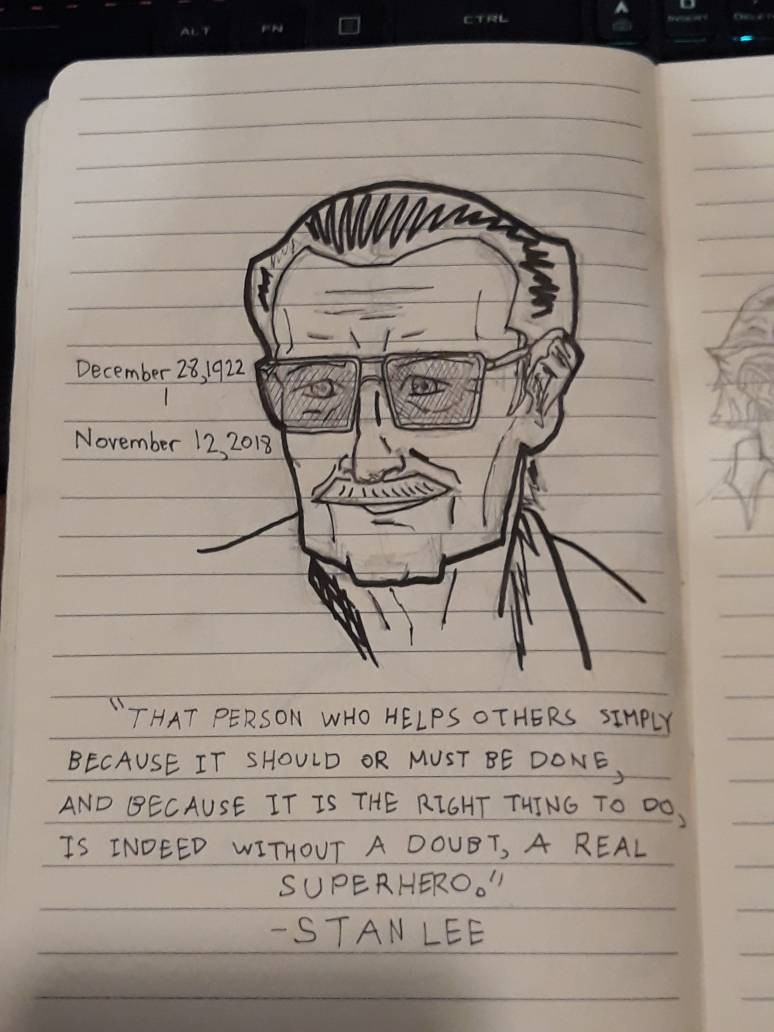 ALT FN CTRL INSERT DELETE
December 28,1922
|
November 12,2018
"THAT PERSON WHO HELPS OTHERS SIMPLY
BECAUSE IT SHOULD OR MUST BE DONE,
AND BECAUSE IT IS THE RIGHT THING TO DO,
IS INDEED WITHOUT A DOUBT, A REAL
SUPERHERO."
-STAN LEE